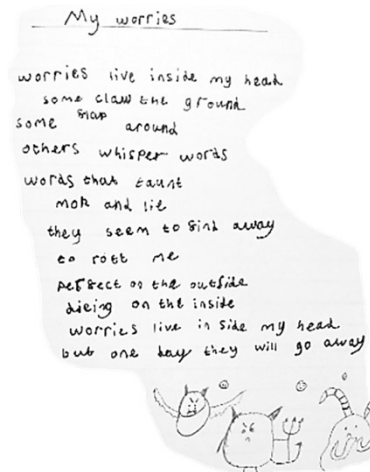 My worries
worries live inside my head
some claw the ground
some slap around
others whisper words
words that taunt
mok and lie
they seem to find away
to rott me
perfect on the outside
dieing on the inside
worries live in side my head
but one day they will go away